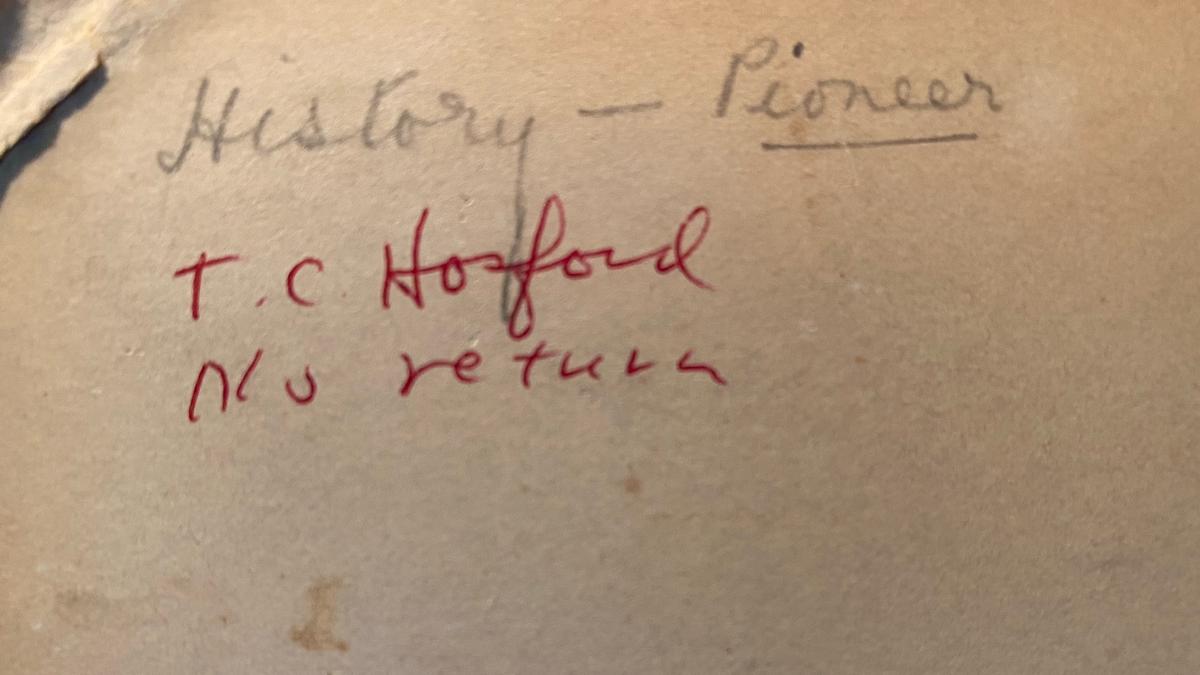 History — Pioneer
T. C. Hosford
return